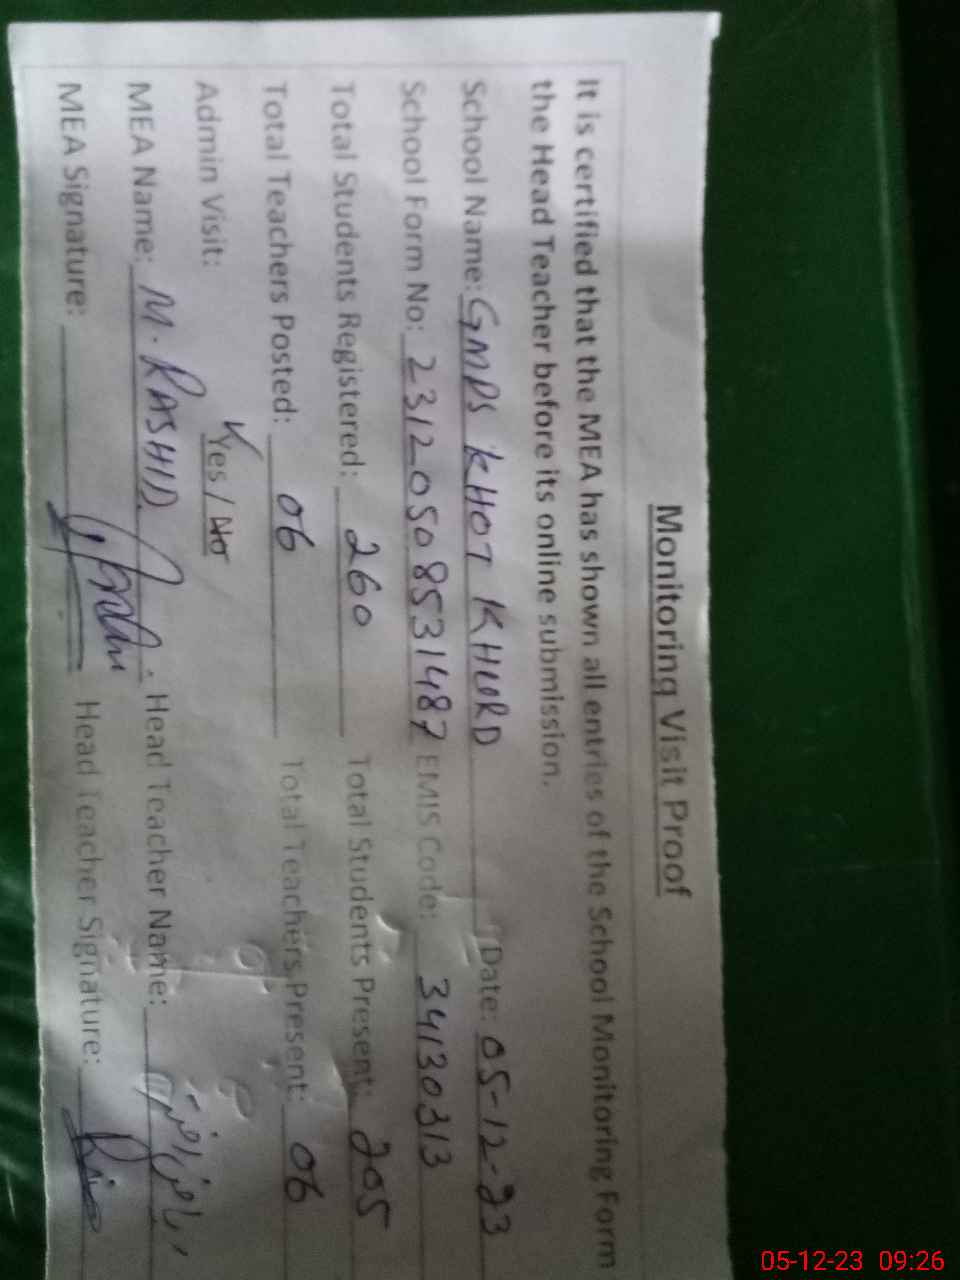 Monitoring Visit Proof
It is certified that the MEA has shown all entries of the School Monitoring Form
the Head Teacher before its online submission.
School Name: GMPS KHOT KHURD Date: 05-12-23
School Form No: 23120508531487 EMIS Code: 34130313
Total Students Registered: 260 Total Students Present: 205
Total Teachers Posted: 06 Total Teachers Present: 06
Admin Visit: Yes / No
MEA Name: M. RASHID Head Teacher Name:
MEA Signature: Head Teacher Signature:
05-12-23 09:26